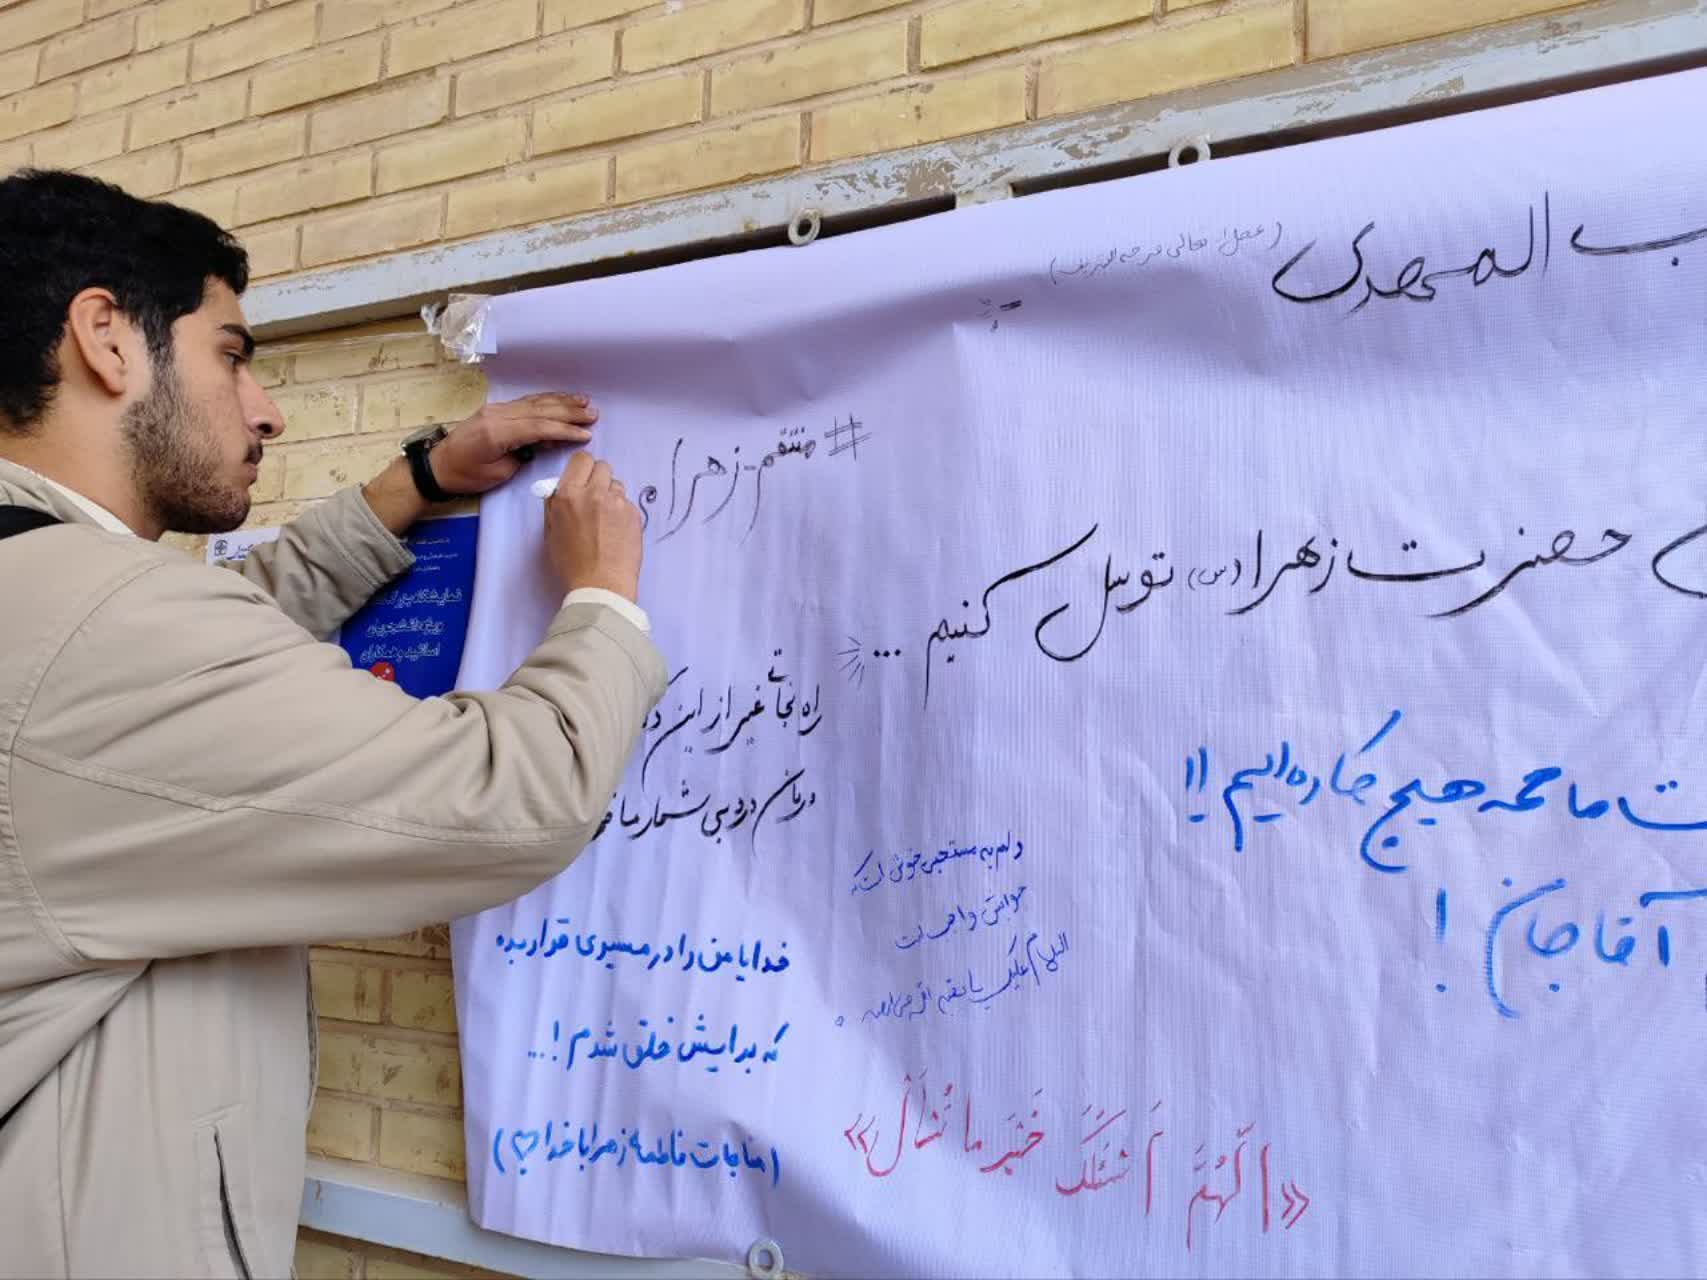 ب المهدی
(عجل الله تعالی فرجه الشریف)
#منتقم-زهرام
حضرت زهرا (س) توسل کنیم ...
راه نجاتی غیر از این
درمان درد بی شمار ما
ت ما همه هیچ کاره ایم !!
آقا جان !
دلم به مستحبی خوش است که
جوابش واجب است
السلام علیک یا بقیة الله
خدایا من را در مسیری قرار بده
که برایش خلق شدم !...
(مناجات فاطمه زهرا با خدا ♡)
«اللّهُمَّ أسئَلُکَ خَیرَ ما تُسْأَل»
نمایشگاه بزرگ
ویژه دانشجویان
اساتید و همکاران